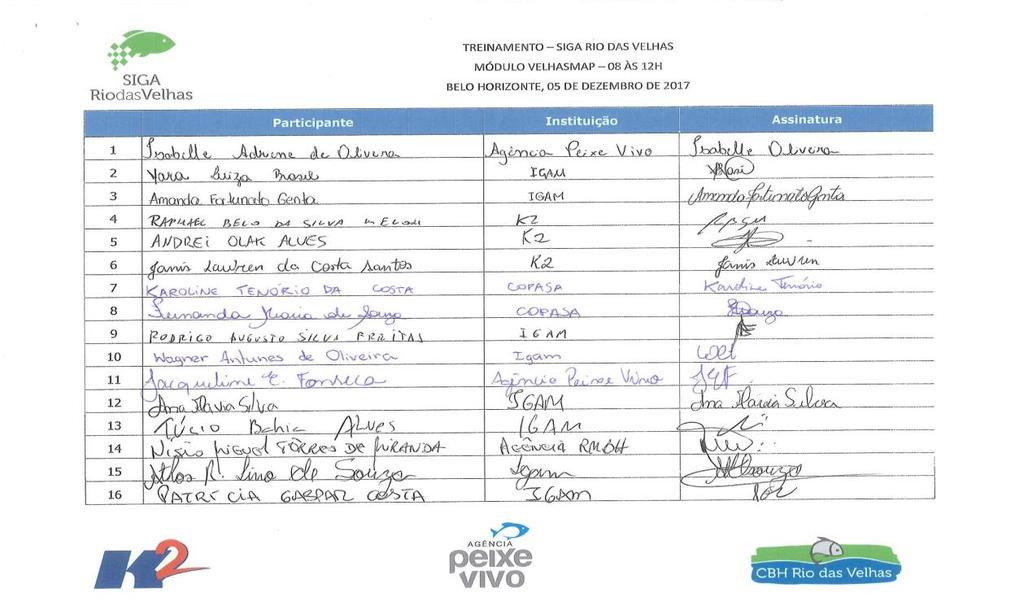 SIGA
RiodasVelhas
TREINAMENTO – SIGA RIO DAS VELHAS
MÓDULO VELHASMAP – 08 ÀS 12H
BELO HORIZONTE, 05 DE DEZEMBRO DE 2017
Participante Instituição Assinatura
1 Isabelle Adriene de Oliveira Agência Peixe Vivo Isabelle Oliveira
2 Yara Luiza Brasil IGAM
3 Amanda Fortunato Genta IGAM Amanda Fortunato Genta
4 RAPHAEL BELO DA SILVA K2
5 ANDREI OLAK ALVES K2
6 Janis Lauren da Costa Santos K2 Janis Lauren
7 KAROLINE TENÓRIO DA COSTA COPASA Karoline Tenório
8 Fernanda Maria de Souza COPASA
9 RODRIGO AUGUSTO SILVA FREITAS IGAM
10 Wagner Antunes de Oliveira Igam
11 Jacqueline E. Fonseca Agência Peixe Vivo JEF
12 Ana Flávia Silva IGAM Ana Flávia Silva
13 TÚCIO Bahia ALVES IGAM
14 MIGUEL TÔRRES DE MIRANDA AGÊNCIA RMBH
15 Athos R. Lino de Souza Igam
16 PATRÍCIA GASPAR COSTA IGAM
K2
AGÊNCIA
peixe
VIVO
CBH Rio das Velhas